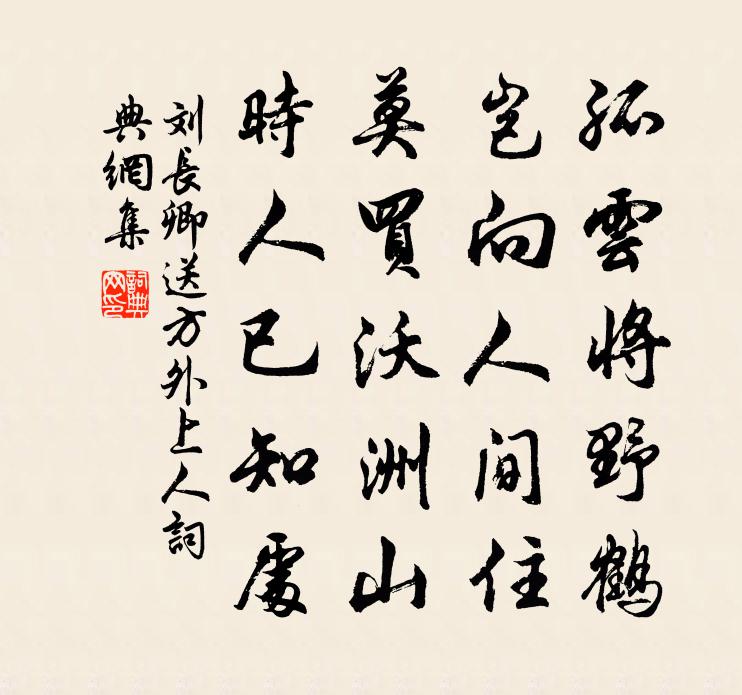 孤雲將野鶴
豈向人間住
莫買沃洲山
時人已知處
刘長卿送方外上人詞
典網集
詞典
网印